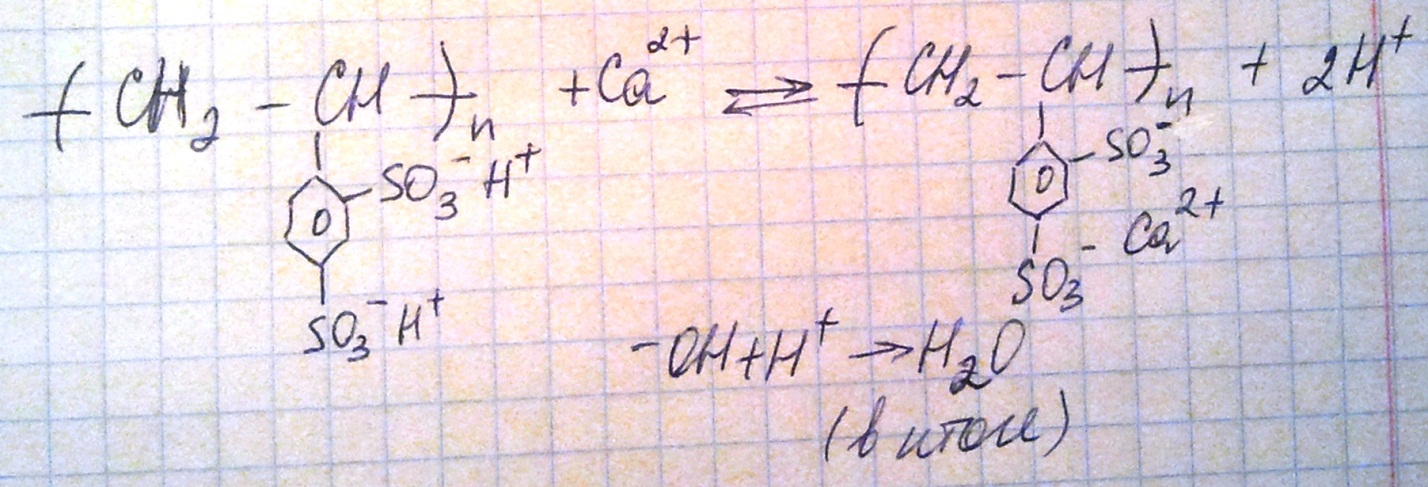 (-CH₂-CH-)n + Ca²⁺ ⇌ (-CH₂-CH-)n + 2H⁺
SO₃⁻H⁺ SO₃⁻
SO₃⁻H⁺ SO₃⁻ Ca²⁺
⁻OH+H⁺ → H₂O
(в итоге)